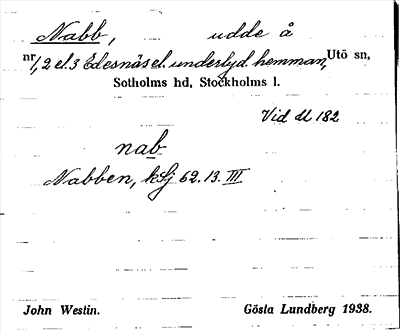 Nabb, udde å
nr 1, 2 el. 3 Edesnäs el. underlyd. hemman, Utö sn,
Sotholms hd, Stockholms l.
Vid M 182
nab
Nabben, ksj 62. 13. III
John Westin. Gösta Lundberg 1938.